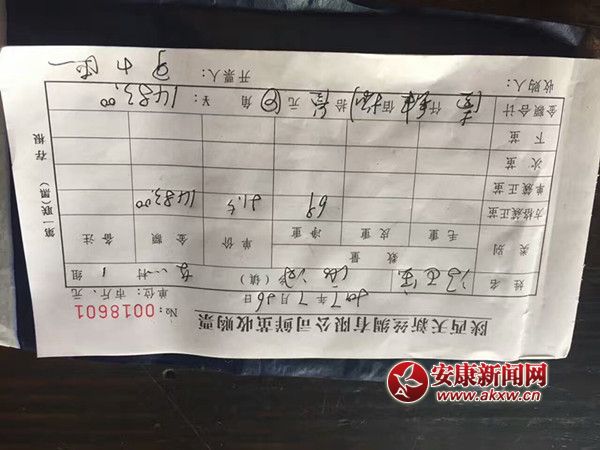 陕西天新丝绸有限公司鲜茧收购票
№: 0018601
2017年7月26日 单位:市斤、元
姓名 (镇) 村 1 组
类别 数量 单价 金额 备注
毛重 皮重 净重
方格簇正茧 69 21.5 1483.00
单簇正茧
次茧
下茧
金额合计 仟 佰 拾 元 角 ¥: 1483.00
收购人: 开票人:
第一联(票) 存根
安康新闻网
www.akxw.cn